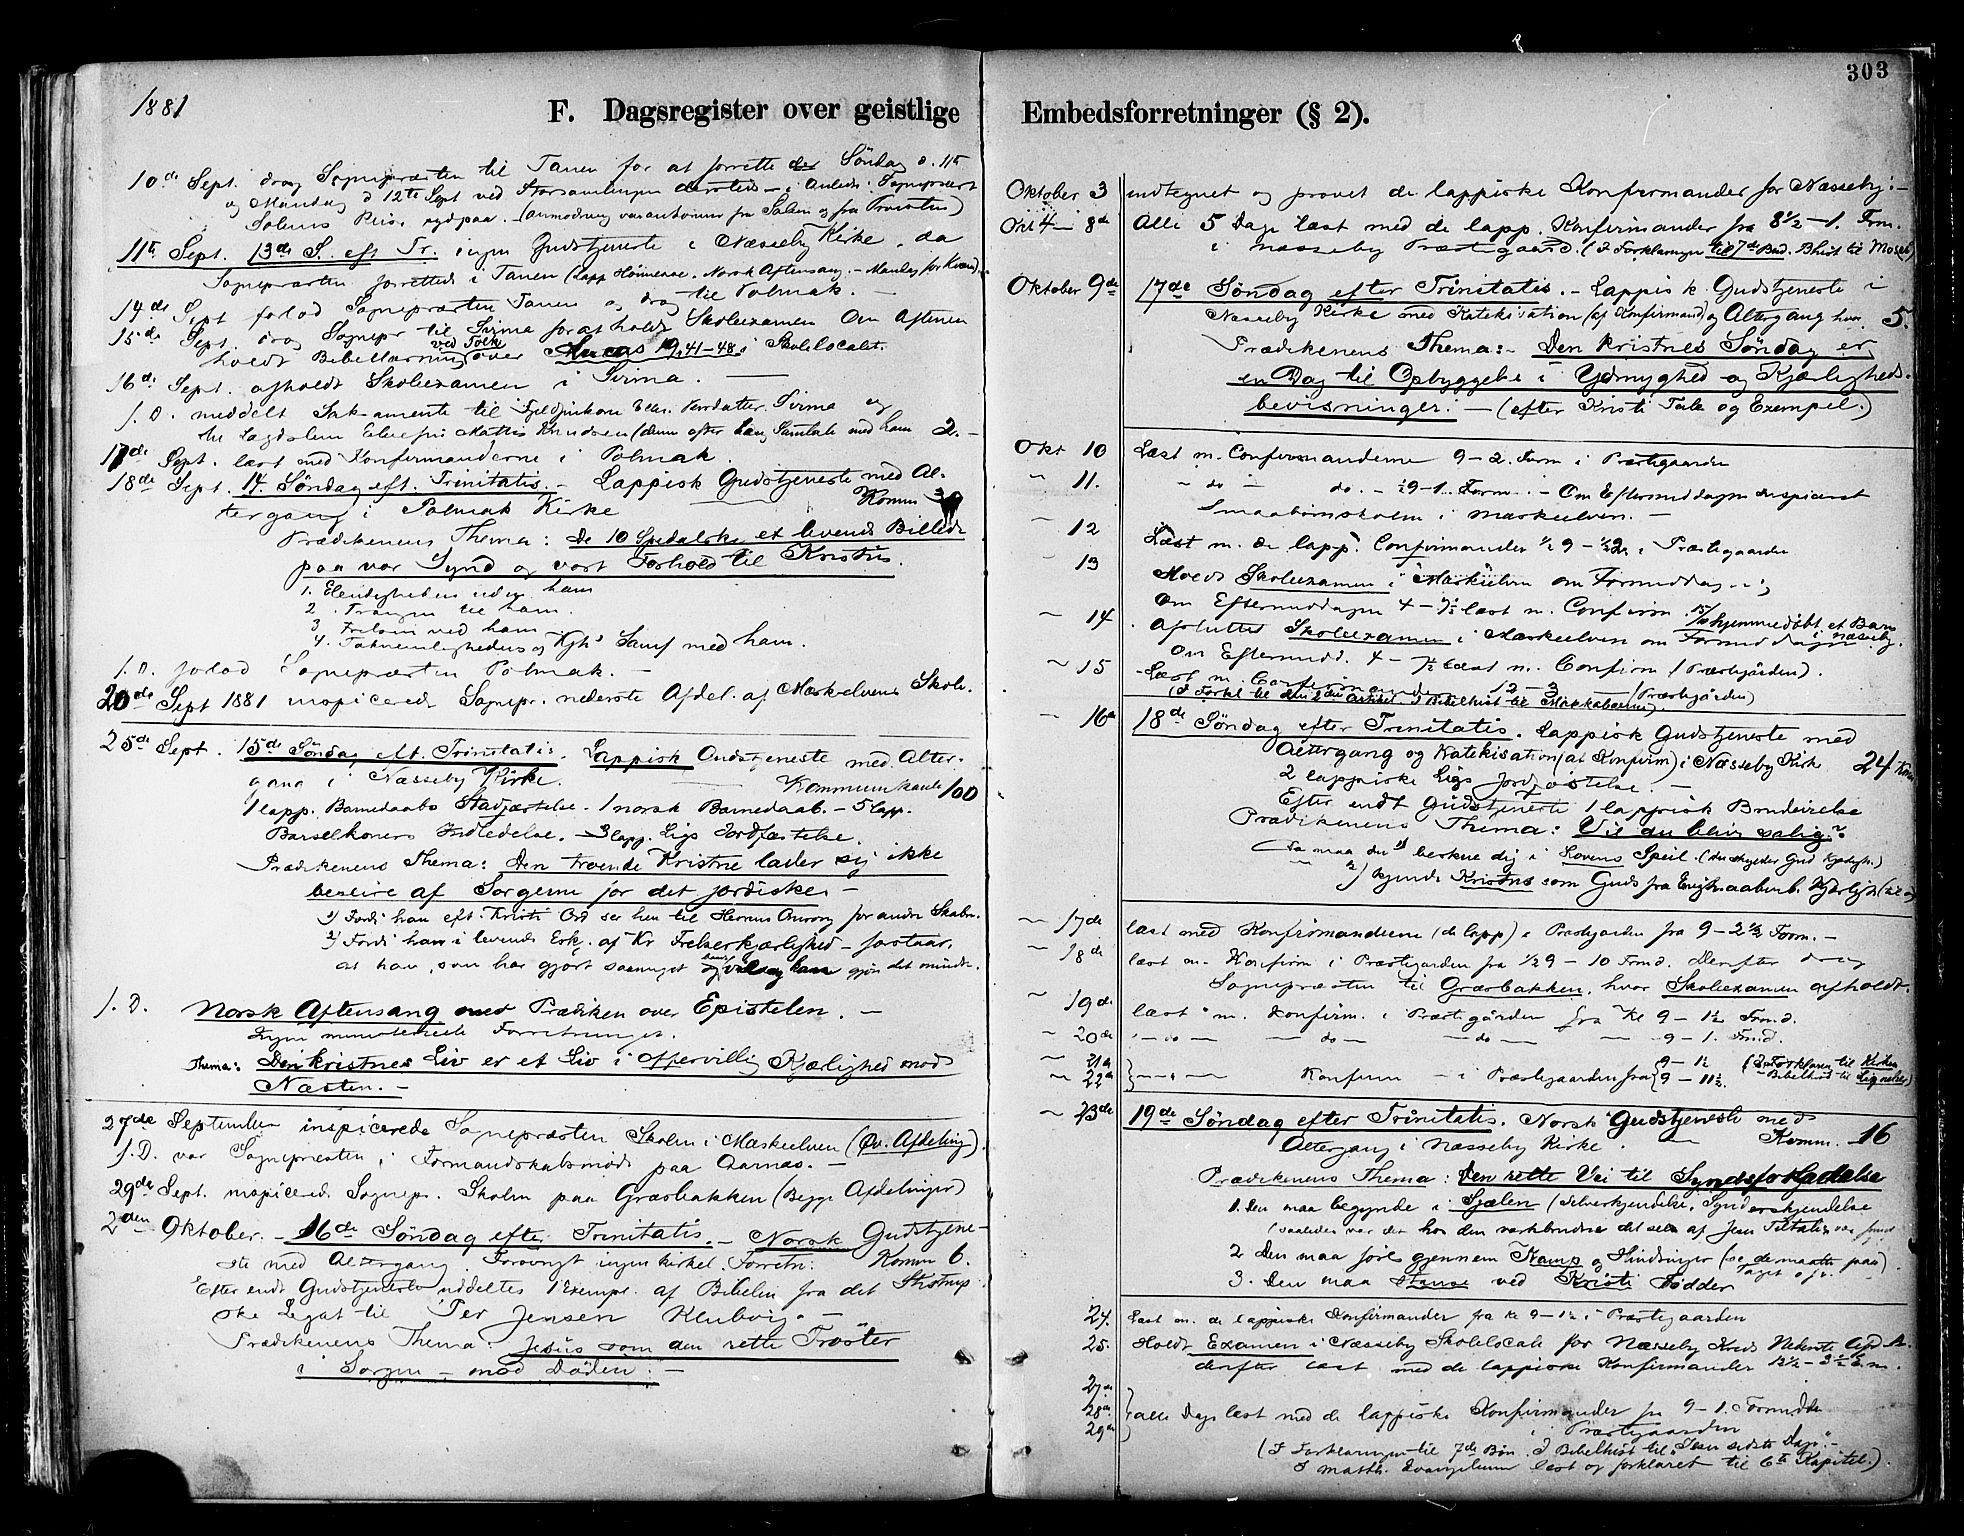 303
1881
F. Dagsregister over geistlige Embedsforretninger (§ 2).
10de Sept. drog Sognepræsten til Tanen for at forrette Søndag d. 11te
og Mandag d 12te Sept ved Forsamlingen dersteds – i Anledn. Sognepræst
Solems Reise sydpaa.
11te Sept. 13de S. eft Tr. ingen Gudstjeneste i Næsseby Kirke, da
Sognepræsten forrettede i Tanen (Lapp Høimesse. Norsk Aftensang. – Mandag for Kvæn).
14de Sept forlod Sognepræsten Tanen og drog til Polmak. –
15de Sept. drog Sognepr til Sirma for at holde Skoleexamen Om Aftenen
holdt Bibellæsning ved Folk over Lucas 19,41-48 i Skolelocalet.
16de Sept. afholdt Skoleexamen i Sirma. –
s. D. meddelt Sakramente til Sirma og
Mattis Knudsen (denne efter lang Samtale med ham 2. –
17de Sept. læst med Konfirmanderne i Polmak.
18de Sept. 14. Søndag eft. Trinitatis. – Lappisk Gudstjeneste med Al-
tergang i Polmak Kirke Komm
Prædikenens Thema: De 10 Spedalske et levende Billede
paa vor Synd og vort Forhold til Kristus.
1. Elendigheden uden ham
2. Trangen til ham.
3. Frelsen ved ham
4. Taknemlighedens og Kjh's Samf med ham.
s. D. forlod Sognepræsten Polmak. –
20de Sept 1881 inspicerede Sognepr. nederste Afdel. af Mæskelvens Skole.
25de Sept. 15de Søndag eft. Trinitatis. Lappisk Gudstjeneste med Alter-
gang i Næsseby Kirke. Kommunikante 100
1 lapp. Barnedaabs Stadfæstelse. 1 norsk Barnedaab. – 5 lapp.
Barselkoners Indledelse. – 3 lapp. Ligs Jordfæstelse.
Prædikenens Thema: Den troende Kristne lader sig ikke
beseire af Sorgerne for det jordiske –
1) Fordi han eft. Kristi Ord ser hen til Herrens Omsorg for andre Skabn.
2) Fordi han i levende Erkj. af Kr Frelserkjærlighed – forstaar,
at han, som har gjort saameget og vil gjøre det mindre.
s. D. Norsk Aftensang med Prædiken over Epistelen. –
Ingen ministerielle Forretninger.
Thema: Den kristnes Liv er et Liv i offervillig Kjærlighed mod
Næsten. –
27de September inspicerede Sognepræsten Skolen i Mæskelven (Øv. Afdeling).
s. D. var Sognepræsten i Formandskabsmøde paa Aarnæs. –
29de Sept. inspicered. Sognepr. Skolen paa Græsbakken (Begge Afdelinger)
2den Oktober. – 16de Søndag efter Trinitatis. – Norsk Gudstjene-
ste med Altergang. Forøvrigt ingen kirkel. Forretn: Komm 6.
Efter endt Gudstjeneste uddeltes 1 Exempl. af Bibelen fra det Stistrup
ske Legat til Per Jensen Klubvig. –
Prædikenens Thema: Jesus som den rette Trøster
i Sorgen – mod Døden: –
Oktober 3 indtegnet og prøvet de lappiske Konfirmander for Næsseby: –
Okt 4 – 8de Alle 5 Dage læst med de lapp. Konfirmander fra 8½ – 1. Form.
i Næsseby Præstegaard. (I Forklaringen til 7de Bud. Bhist til Moses)
Oktober 9de 17de Søndag efter Trinitatis. – Lappisk Gudstjeneste i
Næsseby Kirke med Katekisation (af Konfirmand) og Altergang hvor 5.
Prædikenens Thema: – Den kristnes Søndag er
en Dag til Opbyggelse i Ydmyghed og Kjærligheds-
bevisninger. – (efter Kristi Tale og Exempel.)
Okt 10 Læst m. Confirmanderne 9 – 2. Form i Præstegaarden
" 11. " do – do. – ½9-1. Form. – Om Eftermiddagen inspiceret
Smaabørnskolen i Mæskelven. –
" 12 Læst m. de lapp. Confirmander ½9 – i Præstegaarden
" 13 Holdt Skoleexamen i Mæskelven om Formiddag
Om Eftermiddagen 4 – 7½ læst m. Confirm. 15/10 hjemmedøbt et Barn
i Næsseby.
" 14 Afsluttet Skoleexamen i Mæskelven om Formiddagen
Om Eftermidd. 4 – 7½ læst m. Confirm (Præstegården).
" 15 Læst m. Confirmand 12 – 3 (Præstegården)
(I Forkl til den 2den Artikel I Bibelhist til Makkabæerne).
" 16de 18de Søndag efter Trinitatis. Lappisk Gudstjeneste med
Altergang og Katekisation (af Konfirm) i Næsseby Kirk 24 Kom
2 lappiske Ligs Jordfæstelse. –
Efter endt Gudstjeneste 1 lappisk Brudevielse
Prædikenens Thema: Vil du blive salig?
Da maa du 1) beskue dig i Lovens Speil.
2) kjende Kristus som Guds
" 17de læst med Konfirmanderne (de lapp) i Præstegården fra 9 – 2½ Form. –
" 18de læst m. Konfirm i Præstegården fra ½9 – 10 Frmd. Derefter drog
Sognepræsten til Græsbakken, hvor Skoleexamen afholdt.
" 19de læst m. Konfirm. i Præstegården fra Kl 9 – 1½ Frmd.
" 20de " – do – – do – – do – – 9 – 1. Frmd.
" 21de 9 – 1½ (I Forklaren til Kirken
" 22de Konfirm – i Præstegaarden fra 9 – 11½. Bibelhist til Lignelser)
" 23de 19de Søndag efter Trinitatis. Norsk Gudstjeneste med
Altergang i Næsseby Kirke. – Komm. 16
Prædikenens Thema: Den rette Vei til Syndsforladelse
1. Den maa begynde i Sjælen (Selverkjendelse, Synderkjendelse
(saaledes var det hos den værkbrudne
2. Den maa føre gjennem Kamp og Hindringer
3. Den maa standse ved Kristi Fødder
24. Læst m. de lappiske Konfirmander fra Kl 9 – 1½ i Præstegaarden
25. Holdt Examen i Næsseby Skolelocale for Næsseby Kreds Nederste Afd
derefter læst med de lappiske Konfirmander 12½ – 3½ Em.
27de
28de alle Dage læst med de lappiske Konfirmander fra 9 – 1. Formidda
29de i Præstegaarden
(I Forklaringen til 7de Bøn. I Bibelhist til "Jesu sidste Dage". –
I Matth. Evangelium læst og forklaret til 6te Kapitel.)